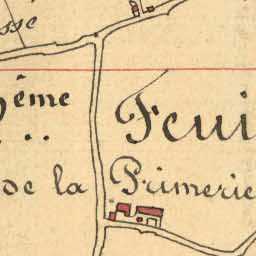 sse
ème Feui
de la Primerie